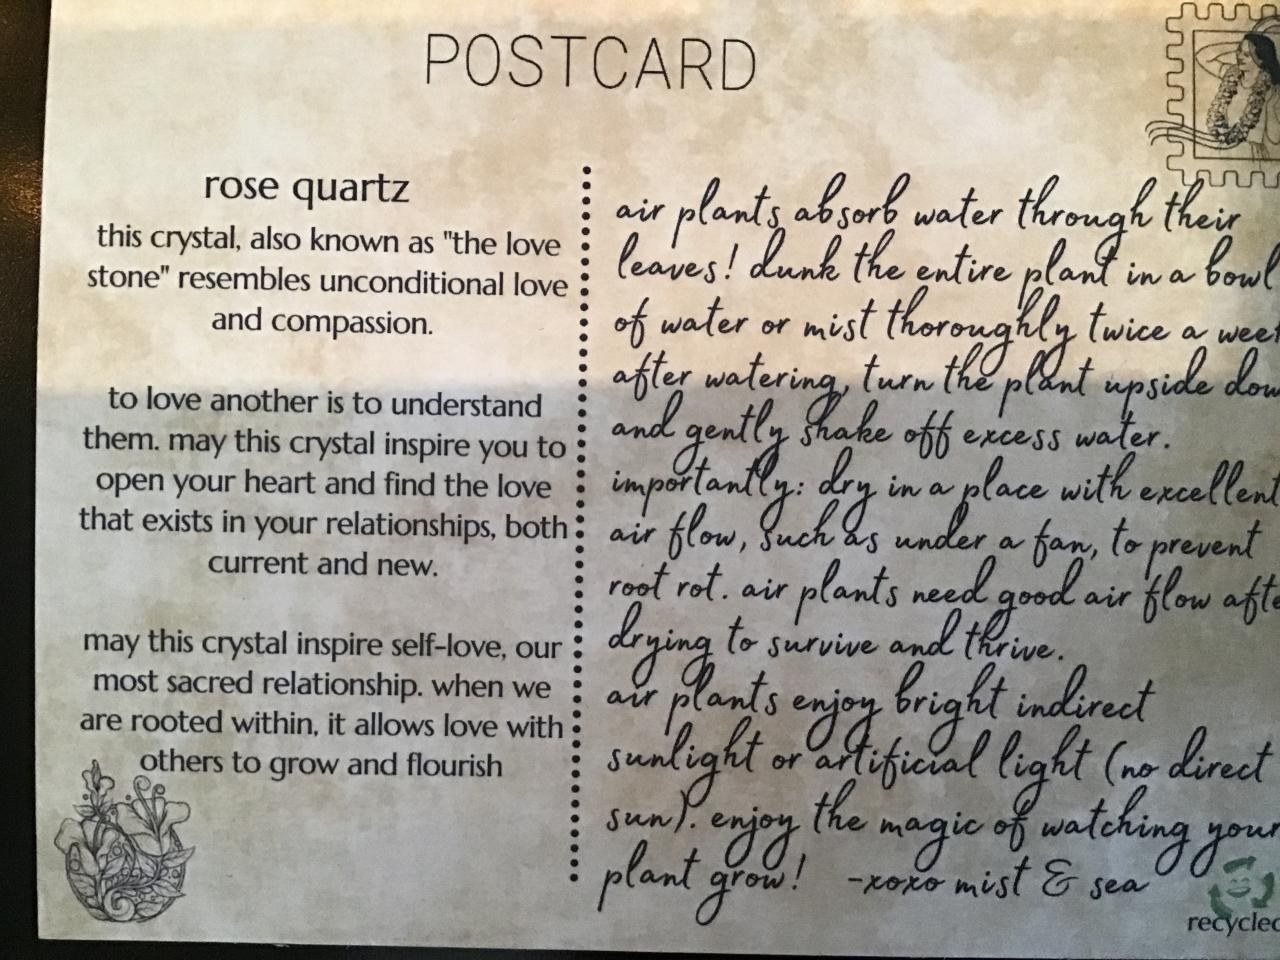 POSTCARD
rose quartz
this crystal, also known as "the love
stone" resembles unconditional love
and compassion.
to love another is to understand
them. may this crystal inspire you to
open your heart and find the love
that exists in your relationships, both
current and new.
may this crystal inspire self-love, our
most sacred relationship. when we
are rooted within, it allows love with
others to grow and flourish
air plants absorb water through their
leaves! dunk the entire plant in a bowl
of water or mist thoroughly twice a week
after watering, turn the plant upside down
and gently shake off excess water.
importantly: dry in a place with excellent
air flow, such as under a fan, to prevent
root rot. air plants need good air flow after
drying to survive and thrive.
air plants enjoy bright indirect
sunlight or artificial light (no direct
sun). enjoy the magic of watching your
plant grow! -xoxo mist & sea
recycled